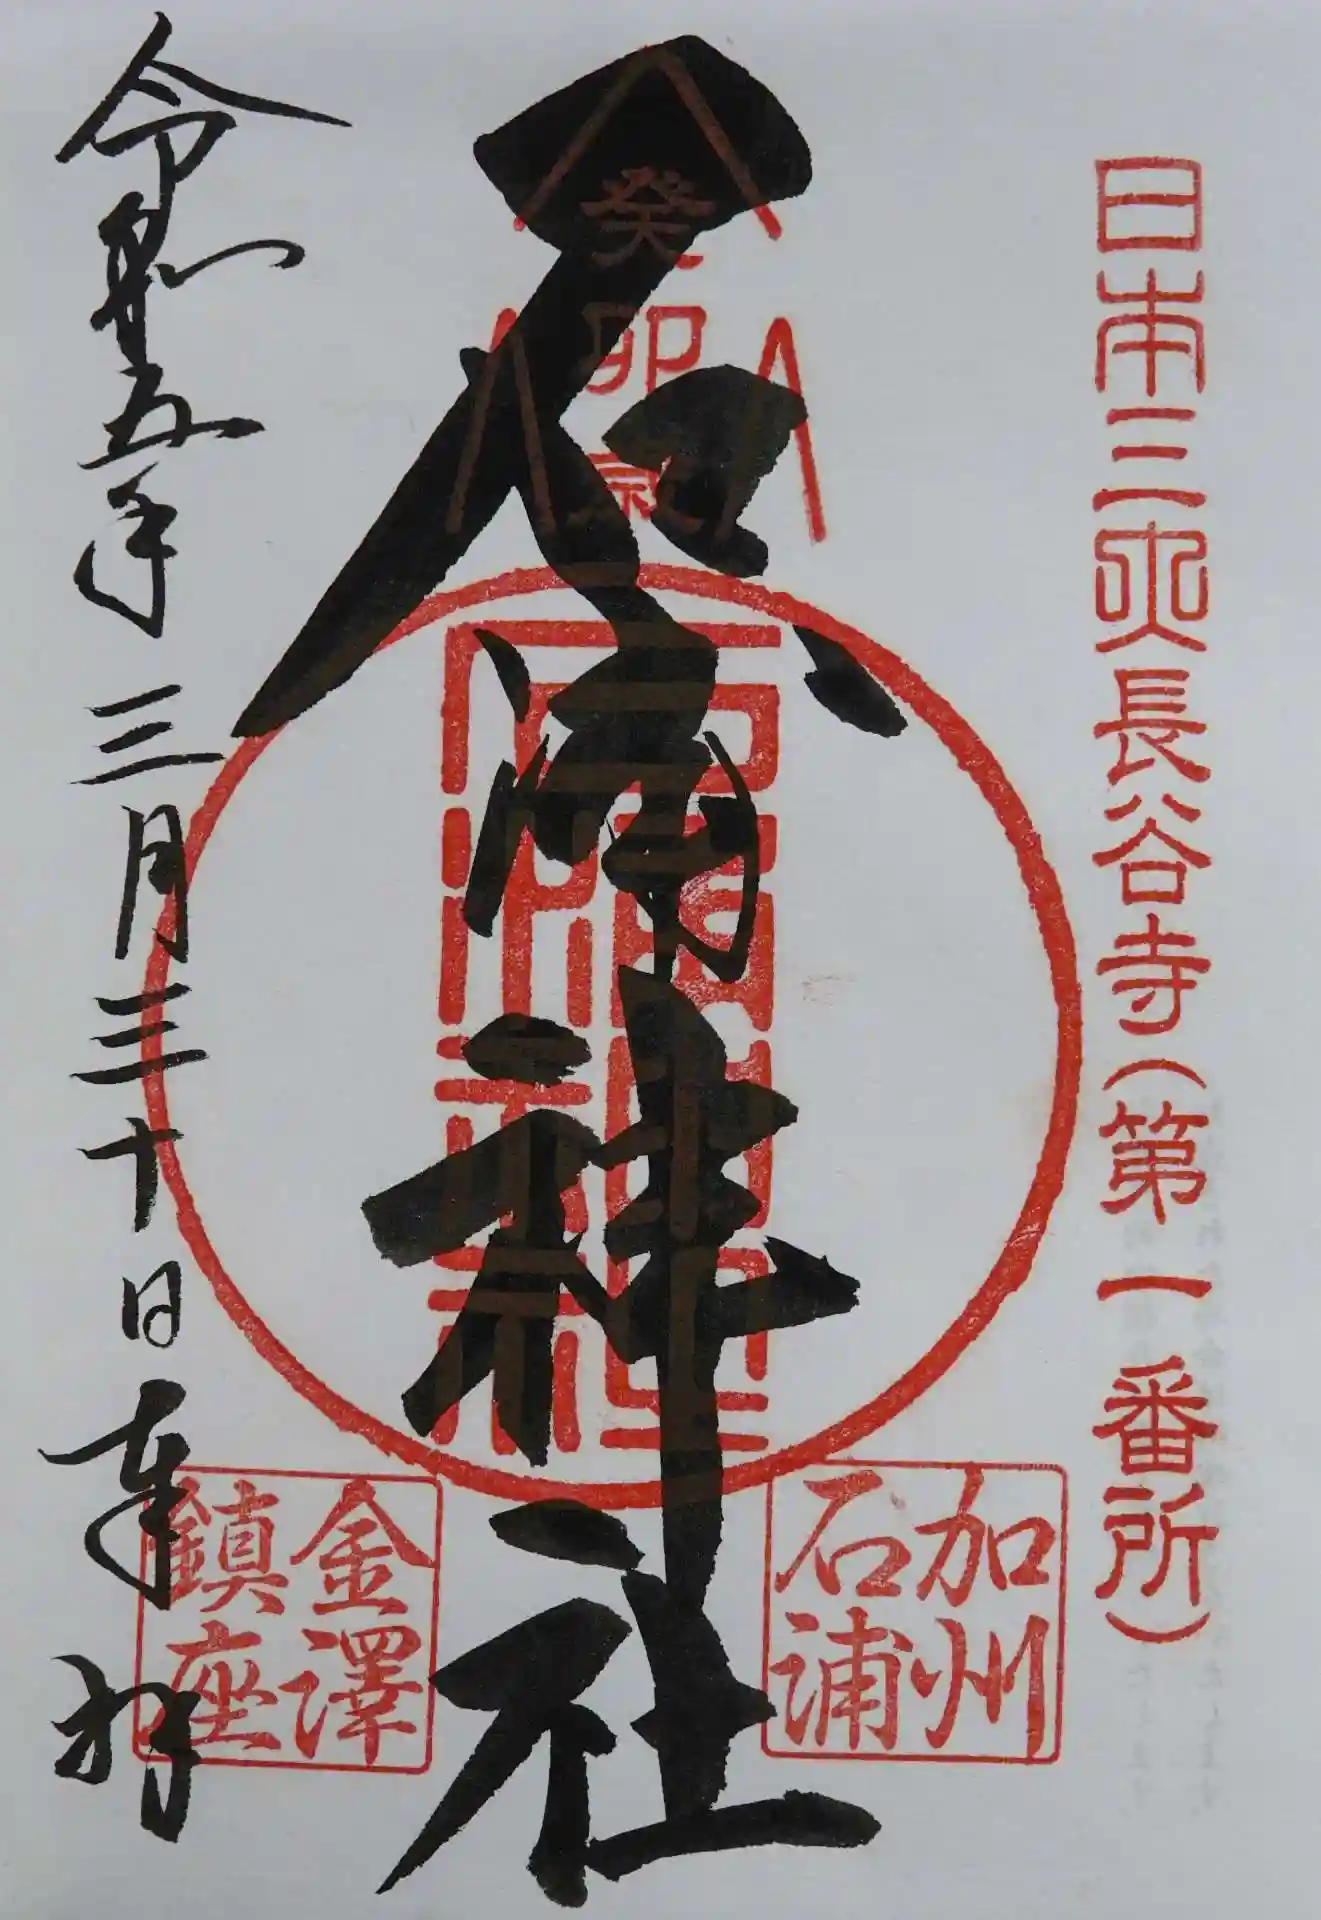 日本三大長谷寺(第一番所)
加州
石浦
癸
卯
石浦神社
石浦神社
金澤
鎮座
令和五年三月三十日奉拝